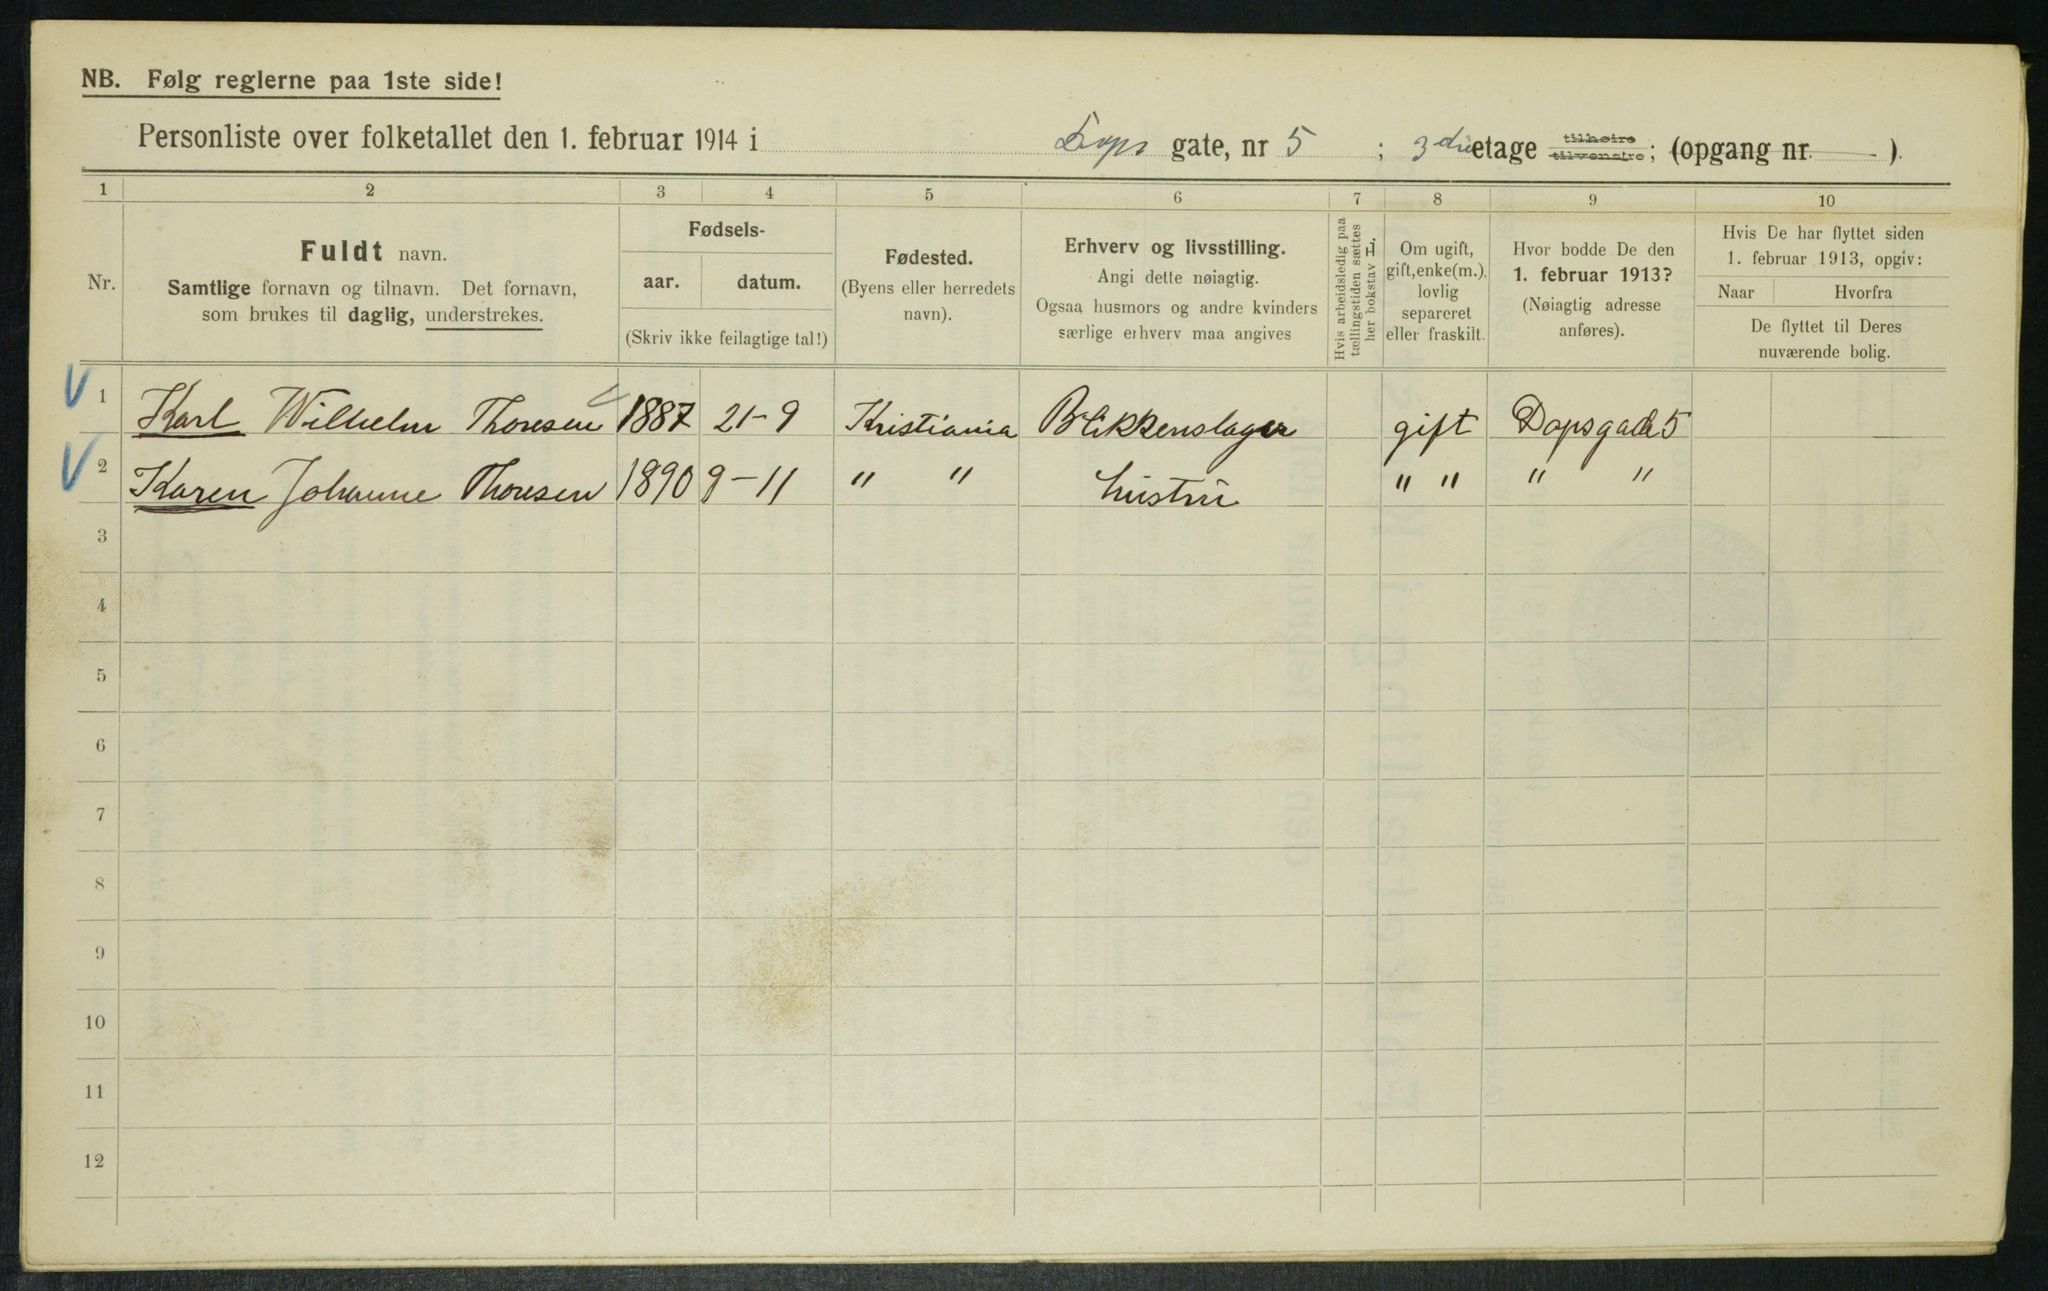 NB. Følg reglerne paa 1ste side!
Personliste over folketallet den 1. februar 1914 i Dops gate, nr 5 ; 3die etage tilhøire tilvenstre; (opgang nr. — ).
1 2 3 4 5 6 7 8 9 10
Nr.
Fuldt navn.
Samtlige fornavn og tilnavn. Det fornavn,
som brukes til daglig, understrekes.
Fødsels-
aar. datum.
(Skriv ikke feilagtige tal!)
Fødested.
(Byens eller herredets
navn).
Erhverv og livsstilling.
Angi dette nøiagtig.
Ogsaa husmors og andre kvinders
særlige erhverv maa angives
Hvis arbeidsledig paa
tællingstiden sættes
her bokstav L.
Om ugift,
gift, enke(m.),
lovlig
separeret
eller fraskilt.
Hvor bodde De den
1. februar 1913?
(Nøiagtig adresse
anføres).
Hvis De har flyttet siden
1. februar 1913, opgiv:
Naar Hvorfra
De flyttet til Deres
nuværende bolig.
1 Karl Wilhelm Thoresen 1887 21-9 Kristiania Blikkenslager gift Dopsgade 5
2 Karen Johanne Thoresen 1890 9-11 " " hustru " " " "
3
4
5
6
7
8
9
10
11
12